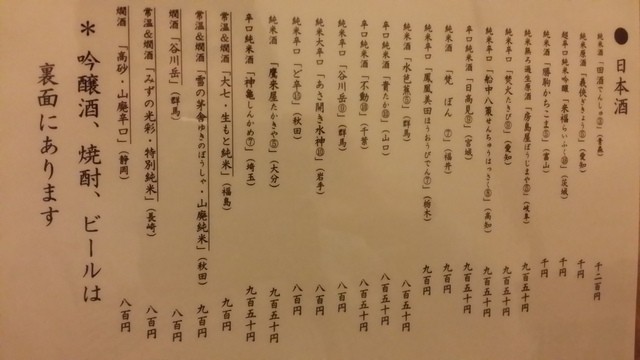 ●日本酒
純米酒「田酒でんしゅ⑬」(青森) 千二百円
純米原酒「義侠ぎきょう⑧」(愛知) 千円
超辛口純米吟醸「来福らいふく⑩」(茨城) 千円
純米酒「勝駒かちこま⑤」(富山) 千円
純米無ろ過生原酒「房島屋ぼうじまや⑧」(岐阜) 九百五十円
純米辛口「焚火たきび⑥」(愛知) 九百円
純米辛口「船中八策せんちゅうはっさく⑤」(高知) 九百五十円
純米酒「日高見⑨」(宮城) 九百五十円
純米酒「梵 ぼん ②」(福井) 九百円
純米辛口「鳳凰美田ほうおうびでん⑦」(栃木) 九百円
純米酒「水芭蕉⑥」(群馬) 八百五十円
辛口純米酒「貴たか⑩」(山口) 八百五十円
辛口純米酒「不動⑩」(千葉) 八百五十円
純米辛口「谷川岳⑨」(群馬) 八百円
純米大辛口「あさ開き水神⑩」(岩手) 八百円
純米辛口「ど辛⑪」(秋田) 八百円
純米酒「鷹来屋たかきや⑤」(大分) 九百五十円
辛口純米酒「神亀しんかめ⑦」(埼玉) 九百五十円
常温&燗酒「大七・生もと純米」(福島) 九百円
常温&燗酒「雪の茅舎ゆきのぼうしゃ・山廃純米」(秋田) 九百円
燗酒「谷川岳」(群馬) 八百円
常温&燗酒「みずの光彩・特別純米」(長崎) 八百円
燗酒「高砂・山廃辛口」(静岡) 八百円
＊吟醸酒、焼酎、ビールは
裏面にあります